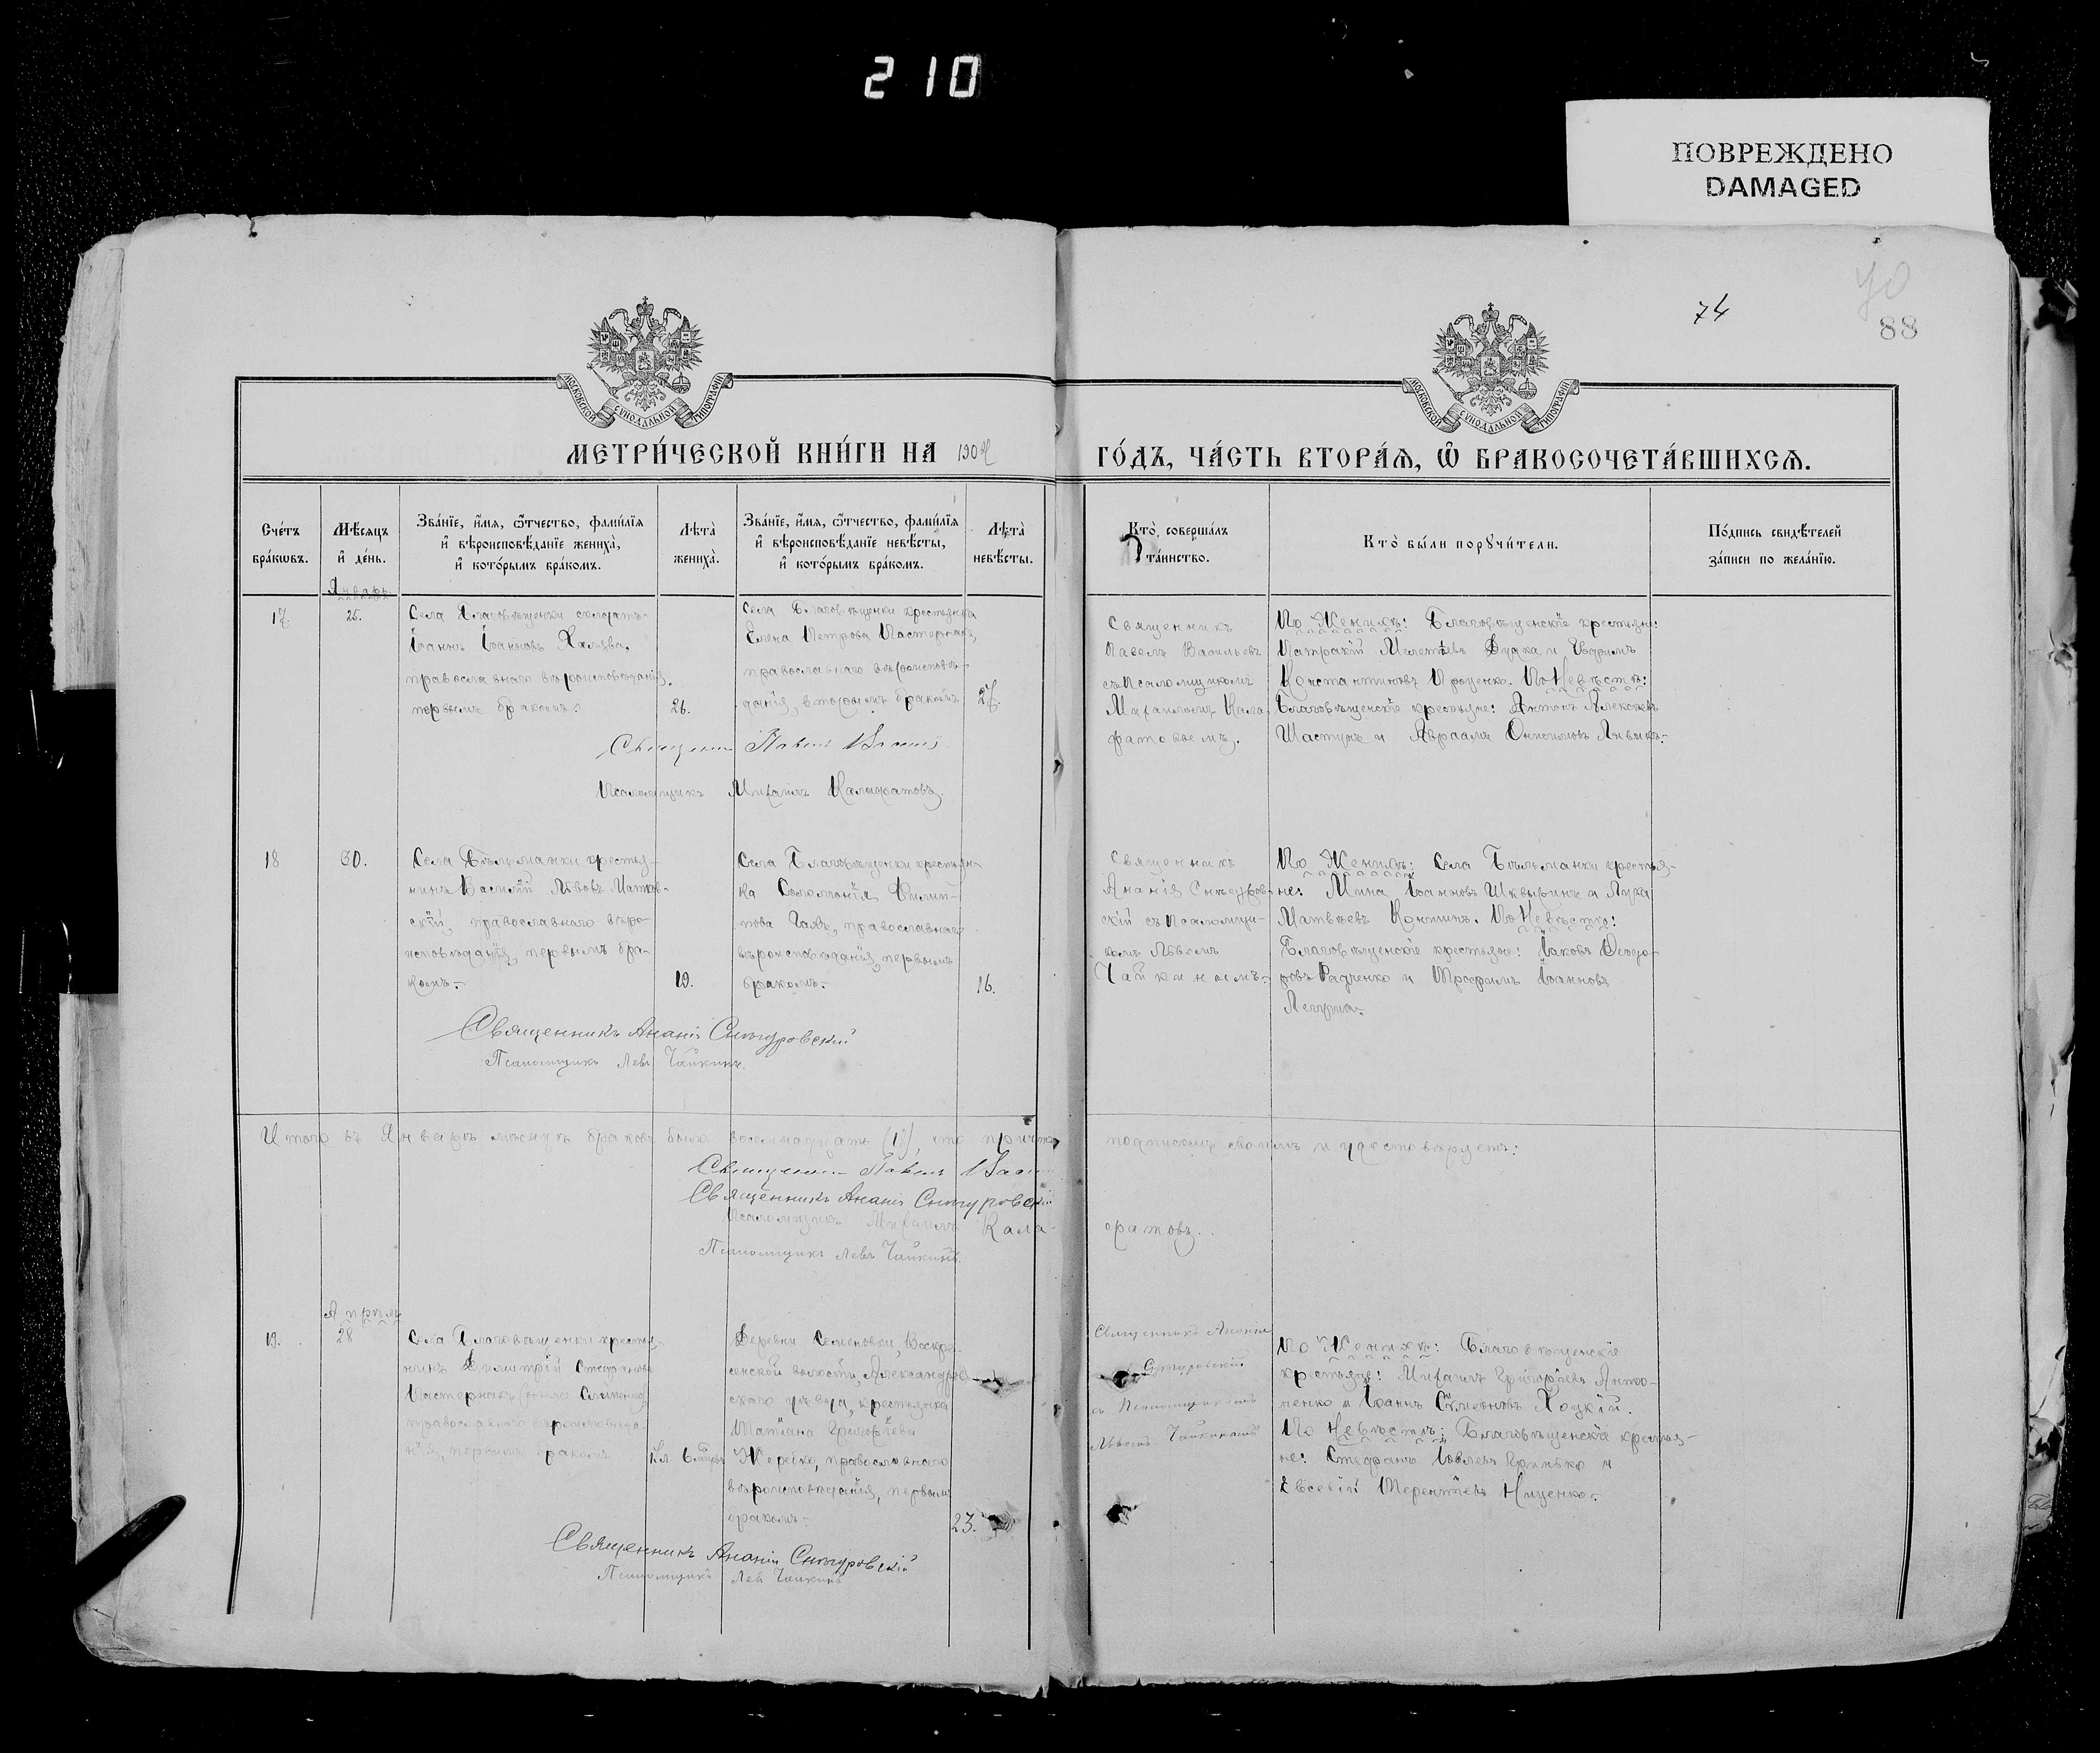 210
ПОВРЕЖДЕНО
DAMAGED
74
70
88
МОСКОВСКОЙ СѴНОДАЛЬНОЙ ТИПОГРАФІИ
МОСКОВСКОЙ СѴНОДАЛЬНОЙ ТИПОГРАФІИ
МЕТРИ́ЧЕСКОЙ КНИ́ГИ НА 1904 ГО́ДЪ, ЧА́СТЬ ВТОРА́Ѧ, Ѽ БРАКОСОЧЕТА́ВШИХСѦ.
Сче́тъ бра́кωвъ.
Мѣ́сяцъ и҆ де́нь.
Зва́нїе, и҆́мя, ѻ҆́тчество, фамилїя
и҆ вѣроисповѣ́данїе жениха̀,
и҆ кото́рымъ бра́комъ.
Лѣта̀ жениха̀.
Зва́нїе, и҆́мя, ѻ҆́тчество, фами́лїя
и҆ вѣроисповѣ́данїе невѣ́сты,
и҆ кото́рымъ бра́комъ.
Лѣта̀ невѣ́сты.
Кто̀ соверша́лъ та́инство.
Кто̀ бы́ли порꙋчи́тели.
По́дпись свидѣ́телей
за́писи по жела́нїю.
Январь
17
25.
Села Благовѣщенки солдатъ
Іоаннъ Іоанновъ
православнаго вѣроисповѣданія,
первымъ бракомъ.
26.
Села Благовѣщенки крестьянка
Елена Петрова Пастернакъ,
православнаго вѣроисповѣ-
данія, вторымъ бракомъ
27.
Священникъ
Павелъ Васильевъ
съ псаломщикомъ
Михаиломъ Кала-
фатовымъ.
По Женихѣ: Благовѣщенскіе крестьяне:
Патракій Мелетіевъ Дудка и Ефримъ
Константиновъ Проценко. По Невѣстѣ:
Благовѣщенскіе крестьяне: Антонъ Алексѣевъ
Шастунъ и Авраамъ Онисимовъ
Священникъ Павелъ
Псаломщикъ Михаилъ Калафатовъ.
18
30.
Села Бѣльманки крестья-
нинъ Василій Львовъ
скій, православнаго вѣро-
исповѣданія, первымъ бра-
комъ.
19.
Села Благовѣщенки крестьян-
ка Соломонія Филип-
пова православнаго
вѣроисповѣданія, первымъ
бракомъ.
16.
Священникъ
Ананія Снѣгуров-
скій съ псаломщи-
комъ Львомъ
Чайкинымъ.
По Женихѣ: Села Бѣльманки крестья-
не: Мина Іоанновъ и Лука
Матвѣевъ По Невѣстѣ:
Благовѣщенскіе крестьяне: Іаковъ Ѳеодо-
ровъ Радченко и Трофимъ Іоанновъ
Священникъ Ананія Снѣгуровскій
Псаломщикъ Левъ Чайкинъ.
Итого въ Январѣ мѣсяцѣ браковъ было восемнадцать (18), что причтъ подписомъ своимъ и удостовѣряетъ:
Священникъ Павелъ
Священникъ Ананія Снѣгуровскій
Псаломщикъ Михаилъ Кала-
фатовъ.
Псаломщикъ Левъ Чайкинъ.
Апрѣль
19.
28
Села Благовѣщенки крестья-
нинъ Димитрій Стефановъ
Пастернакъ
православнаго вѣроисповѣда-
нія, первымъ бракомъ
Деревни Семеновки Воскре-
сенской волости, Александров-
скаго уѣзда, крестьянка
Татіана Григоріева
православнаго
вѣроисповѣданія, первымъ
бракомъ.
23.
Священникъ Ананія
Снѣгуровскій
съ Псаломщикомъ
Львомъ Чайкинымъ
По Женихѣ: Благовѣщенскіе
крестьяне: Михаилъ Григоріевъ Анто-
ненко и Іоаннъ Сѵмеоновъ Хоцкій.
По Невѣстѣ: Благовѣщенскіе крестья-
не: Стефанъ Іовлевъ Гринько и
Евсевій Терентіевъ Ниценко.
Священникъ Ананія Снѣгуровскій
Псаломщикъ Левъ Чайкинъ